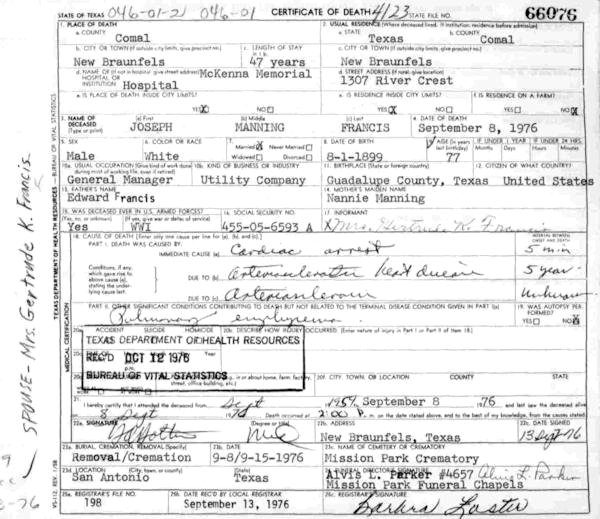 STATE OF TEXAS 046-01-2 046-01 CERTIFICATE OF DEATH 4/23 STATE FILE NO. 66076
1. PLACE OF DEATH 2. USUAL RESIDENCE (Where deceased lived. If institution, residence before admission)
a. COUNTY a. STATE b. COUNTY
Comal Texas Comal
b. CITY OR TOWN (If outside city limits, give precinct no.) c. LENGTH OF STAY in 1 b. c. CITY OR TOWN (If outside city limits, give precinct no.)
New Braunfels 47 years New Braunfels
d. NAME OF (If not in hospital, give street address) HOSPITAL OR INSTITUTION McKenna Memorial Hospital d. STREET ADDRESS (If rural, give location) 1307 River Crest
e. IS PLACE OF DEATH INSIDE CITY LIMITS? e. IS RESIDENCE INSIDE CITY LIMITS? f. IS RESIDENCE ON A FARM?
YES X NO YES X NO YES NO X
3. NAME OF DECEASED (Type or print) (a) First (b) Middle (c) Last 4. DATE OF DEATH
JOSEPH MANNING FRANCIS September 8, 1976
5. SEX 6. COLOR OR RACE 7. Married Never Married Widowed Divorced 8. DATE OF BIRTH 9. AGE (In years last birthday) IF UNDER 1 YEAR IF UNDER 24 HRS.
Months Days Hours Minutes
Male White 8-1-1899 77
10a. USUAL OCCUPATION (Give kind of work done during most of working life, even if retired) 10b. KIND OF BUSINESS OR INDUSTRY 11. BIRTHPLACE (State or foreign country) 12. CITIZEN OF WHAT COUNTRY?
General Manager Utility Company Guadalupe County, Texas United States
13. FATHER'S NAME 14. MOTHER'S MAIDEN NAME
Edward Francis Nannie Manning
15. WAS DECEASED EVER IN U.S. ARMED FORCES? 16. SOCIAL SECURITY NO. 17. INFORMANT
(Yes, no, or unknown) (If yes, give war or dates of service)
Yes WWI 455-05-6593 A Mrs. Gertrude K. Francis
18. CAUSE OF DEATH [Enter only one cause per line for (a), (b), and (c).] INTERVAL BETWEEN ONSET AND DEATH
PART I. DEATH WAS CAUSED BY:
IMMEDIATE CAUSE (a) Cardiac arrest 5 min
Conditions, if any, which gave rise to above cause (a), stating the underlying cause last.
DUE TO (b) heart disease 5 year
DUE TO (c)
PART II. OTHER SIGNIFICANT CONDITIONS CONTRIBUTING TO DEATH BUT NOT RELATED TO THE TERMINAL DISEASE CONDITION GIVEN IN PART I(a) 19. WAS AUTOPSY PERFORMED?
Pulmonary emphysema YES NO X
20a. ACCIDENT SUICIDE HOMICIDE 20b. DESCRIBE HOW INJURY OCCURRED. (Enter nature of injury in Part I or Part II of item 18.)
TEXAS DEPARTMENT OF HEALTH RESOURCES
REC'D OCT 12 1976
BUREAU OF VITAL STATISTICS
20f. CITY, TOWN, OR LOCATION COUNTY STATE
21. I hereby certify that I attended the deceased from Sept 1959, September 8 1976 and last saw the deceased alive
on 8 Sept 1976 Death occurred at 2:00 P. m. on the date stated above, and to the best of my knowledge, from the causes stated.
22a. SIGNATURE (Degree or title) 22b. ADDRESS 22c. DATE SIGNED
New Braunfels, Texas 13 Sept 76
23a. BURIAL, CREMATION, REMOVAL (Specify) 23b. DATE 23c. NAME OF CEMETERY OR CREMATORY
Removal/Cremation 9-8/9-15-1976 Mission Park Crematory
23d. LOCATION (City, town, or county) (State) 24. FUNERAL DIRECTOR'S SIGNATURE
San Antonio Texas Alvis L. Parker #4657 Alvis L. Parker
Mission Park Funeral Chapels
25a. REGISTRAR'S FILE NO. 25b. DATE REC'D BY LOCAL REGISTRAR 25c. REGISTRAR'S SIGNATURE
198 September 13, 1976 Barbara
TEXAS DEPARTMENT OF HEALTH RESOURCES — BUREAU OF VITAL STATISTICS
MEDICAL CERTIFICATION
SPOUSE - Mrs. Gertrude K. Francis.